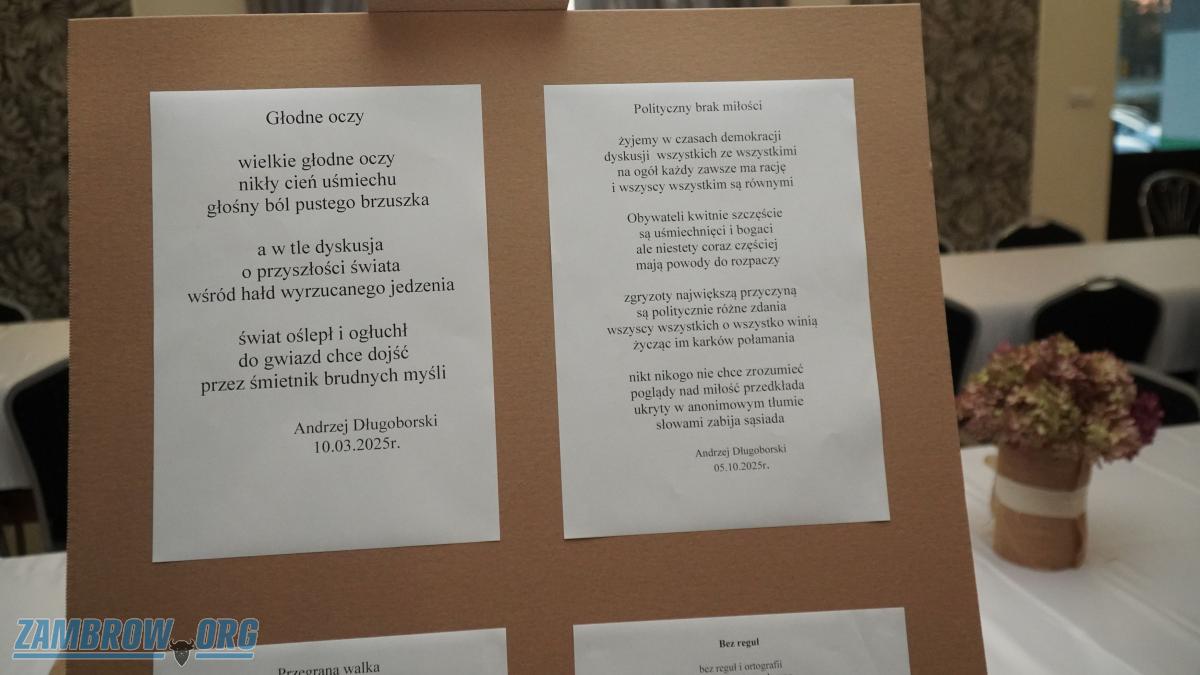 Głodne oczy
wielkie głodne oczy
nikły cień uśmiechu
głośny ból pustego brzuszka
a w tle dyskusja
o przyszłości świata
wśród hałd wyrzucanego jedzenia
świat oślepł i ogłuchł
do gwiazd chce dojść
przez śmietnik brudnych myśli
Andrzej Długoborski
10.03.2025r.
Polityczny brak miłości
żyjemy w czasach demokracji
dyskusji wszystkich ze wszystkimi
na ogół każdy zawsze ma rację
i wszyscy wszystkim są równymi
Obywateli kwitnie szczęście
są uśmiechnięci i bogaci
ale niestety coraz częściej
mają powody do rozpaczy
zgryzoty największą przyczyną
są politycznie różne zdania
wszyscy wszystkich o wszystko winią
życząc im karków połamania
nikt nikogo nie chce zrozumieć
poglądy nad miłość przedkłada
ukryty w anonimowym tłumie
słowami zabija sąsiada
Andrzej Długoborski
05.10.2025r.
Przegrana walka
Bez reguł
bez reguł i ortografii
ZAMBROW.ORG